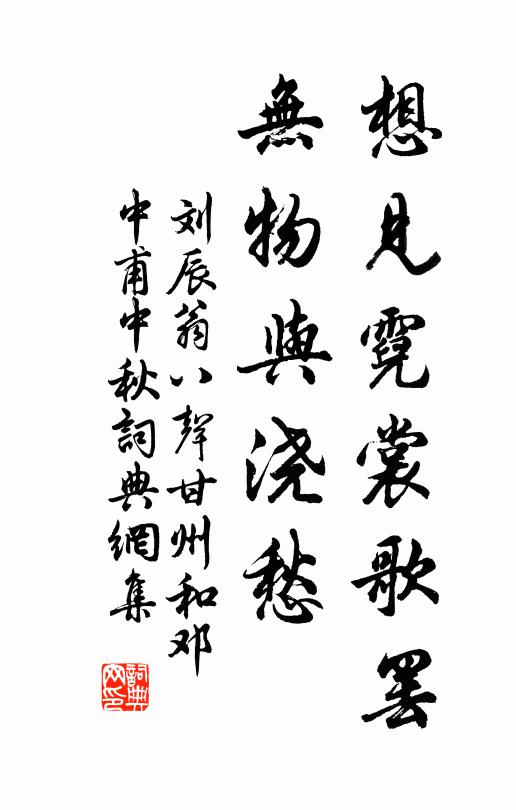 想見霓裳歌罢
無物與浇愁
刘辰翁八聲甘州和邓
中甫中秋詞典網集
詞典
网印